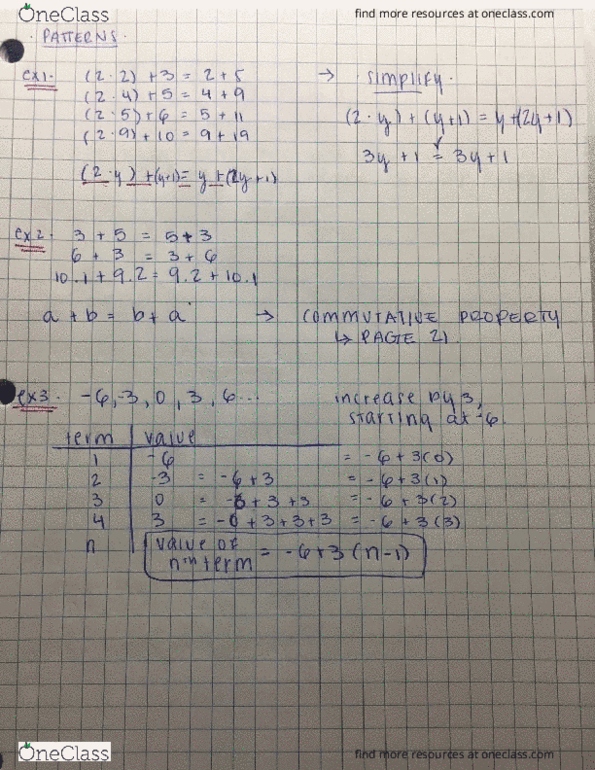 OneClass
find more resources at oneclass.com
· PATTERNS ·
ex1. (2·2) + 3 = 2 + 5 → simplify.
(2·4) + 5 = 4 + 9
(2·5) + 6 = 5 + 11 (2·y) + (y+1) = y + (2y+1)
(2·9) + 10 = 9 + 19
3y + 1 = 3y + 1
(2·y) + (y+1) = y + (2y+1)
ex2. 3 + 5 = 5 + 3
6 + 3 = 3 + 6
10.1 + 9.2 = 9.2 + 10.1
a + b = b + a → COMMUTATIVE PROPERTY
↳ PAGE 21
ex3. -6, -3, 0, 3, 6... increase by 3,
starting at -6.
term value
1 -6 = -6 + 3(0)
2 -3 = -6 + 3 = -6 + 3(1)
3 0 = -6 + 3 + 3 = -6 + 3(2)
4 3 = -6 + 3 + 3 + 3 = -6 + 3(3)
n value of
nth term = -6 + 3 (n-1)
OneClass
find more resources at oneclass.com